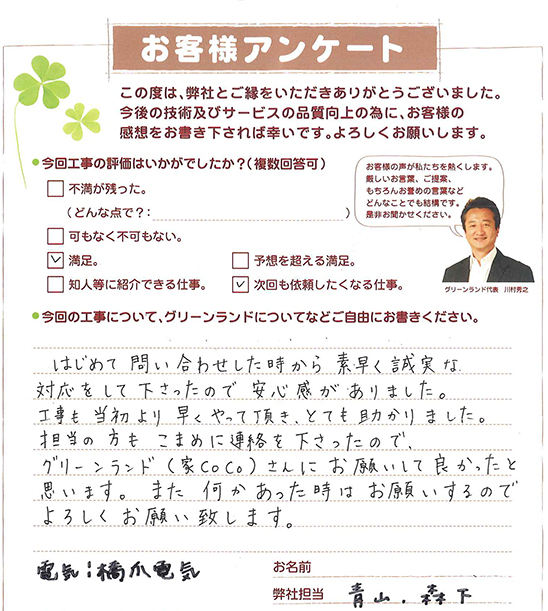 お客様アンケート
この度は、弊社とご縁をいただきありがとうございました。
今後の技術及びサービスの品質向上の為に、お客様の
感想をお書き下されば幸いです。よろしくお願いします。
今回工事の評価はいかがでしたか？(複数回答可)
不満が残った。
(どんな点で？: )
可もなく不可もない。
満足。
予想を超える満足。
知人等に紹介できる仕事。
次回も依頼したくなる仕事。
お客様の声が私たちを熱くします。
厳しいお言葉、ご提案、
もちろんお誉めの言葉など
どんなことでも結構です。
是非お聞かせください。
グリーンランド代表 川村秀之
今回の工事について、グリーンランドについてなどご自由にお書きください。
はじめて 問い合わせした時から 素早く誠実な
対応をして下さったので 安心感がありました。
工事も 当初より 早くやって頂き、とても助かりました。
担当の方も こまめに連絡を下さったので、
グリーンランド(家CoCo)さんに お願いして良かったと
思います。 また 何かあった時は お願いするので
よろしくお願い致します。
電気:橋爪電気
お名前
弊社担当 青山、森下